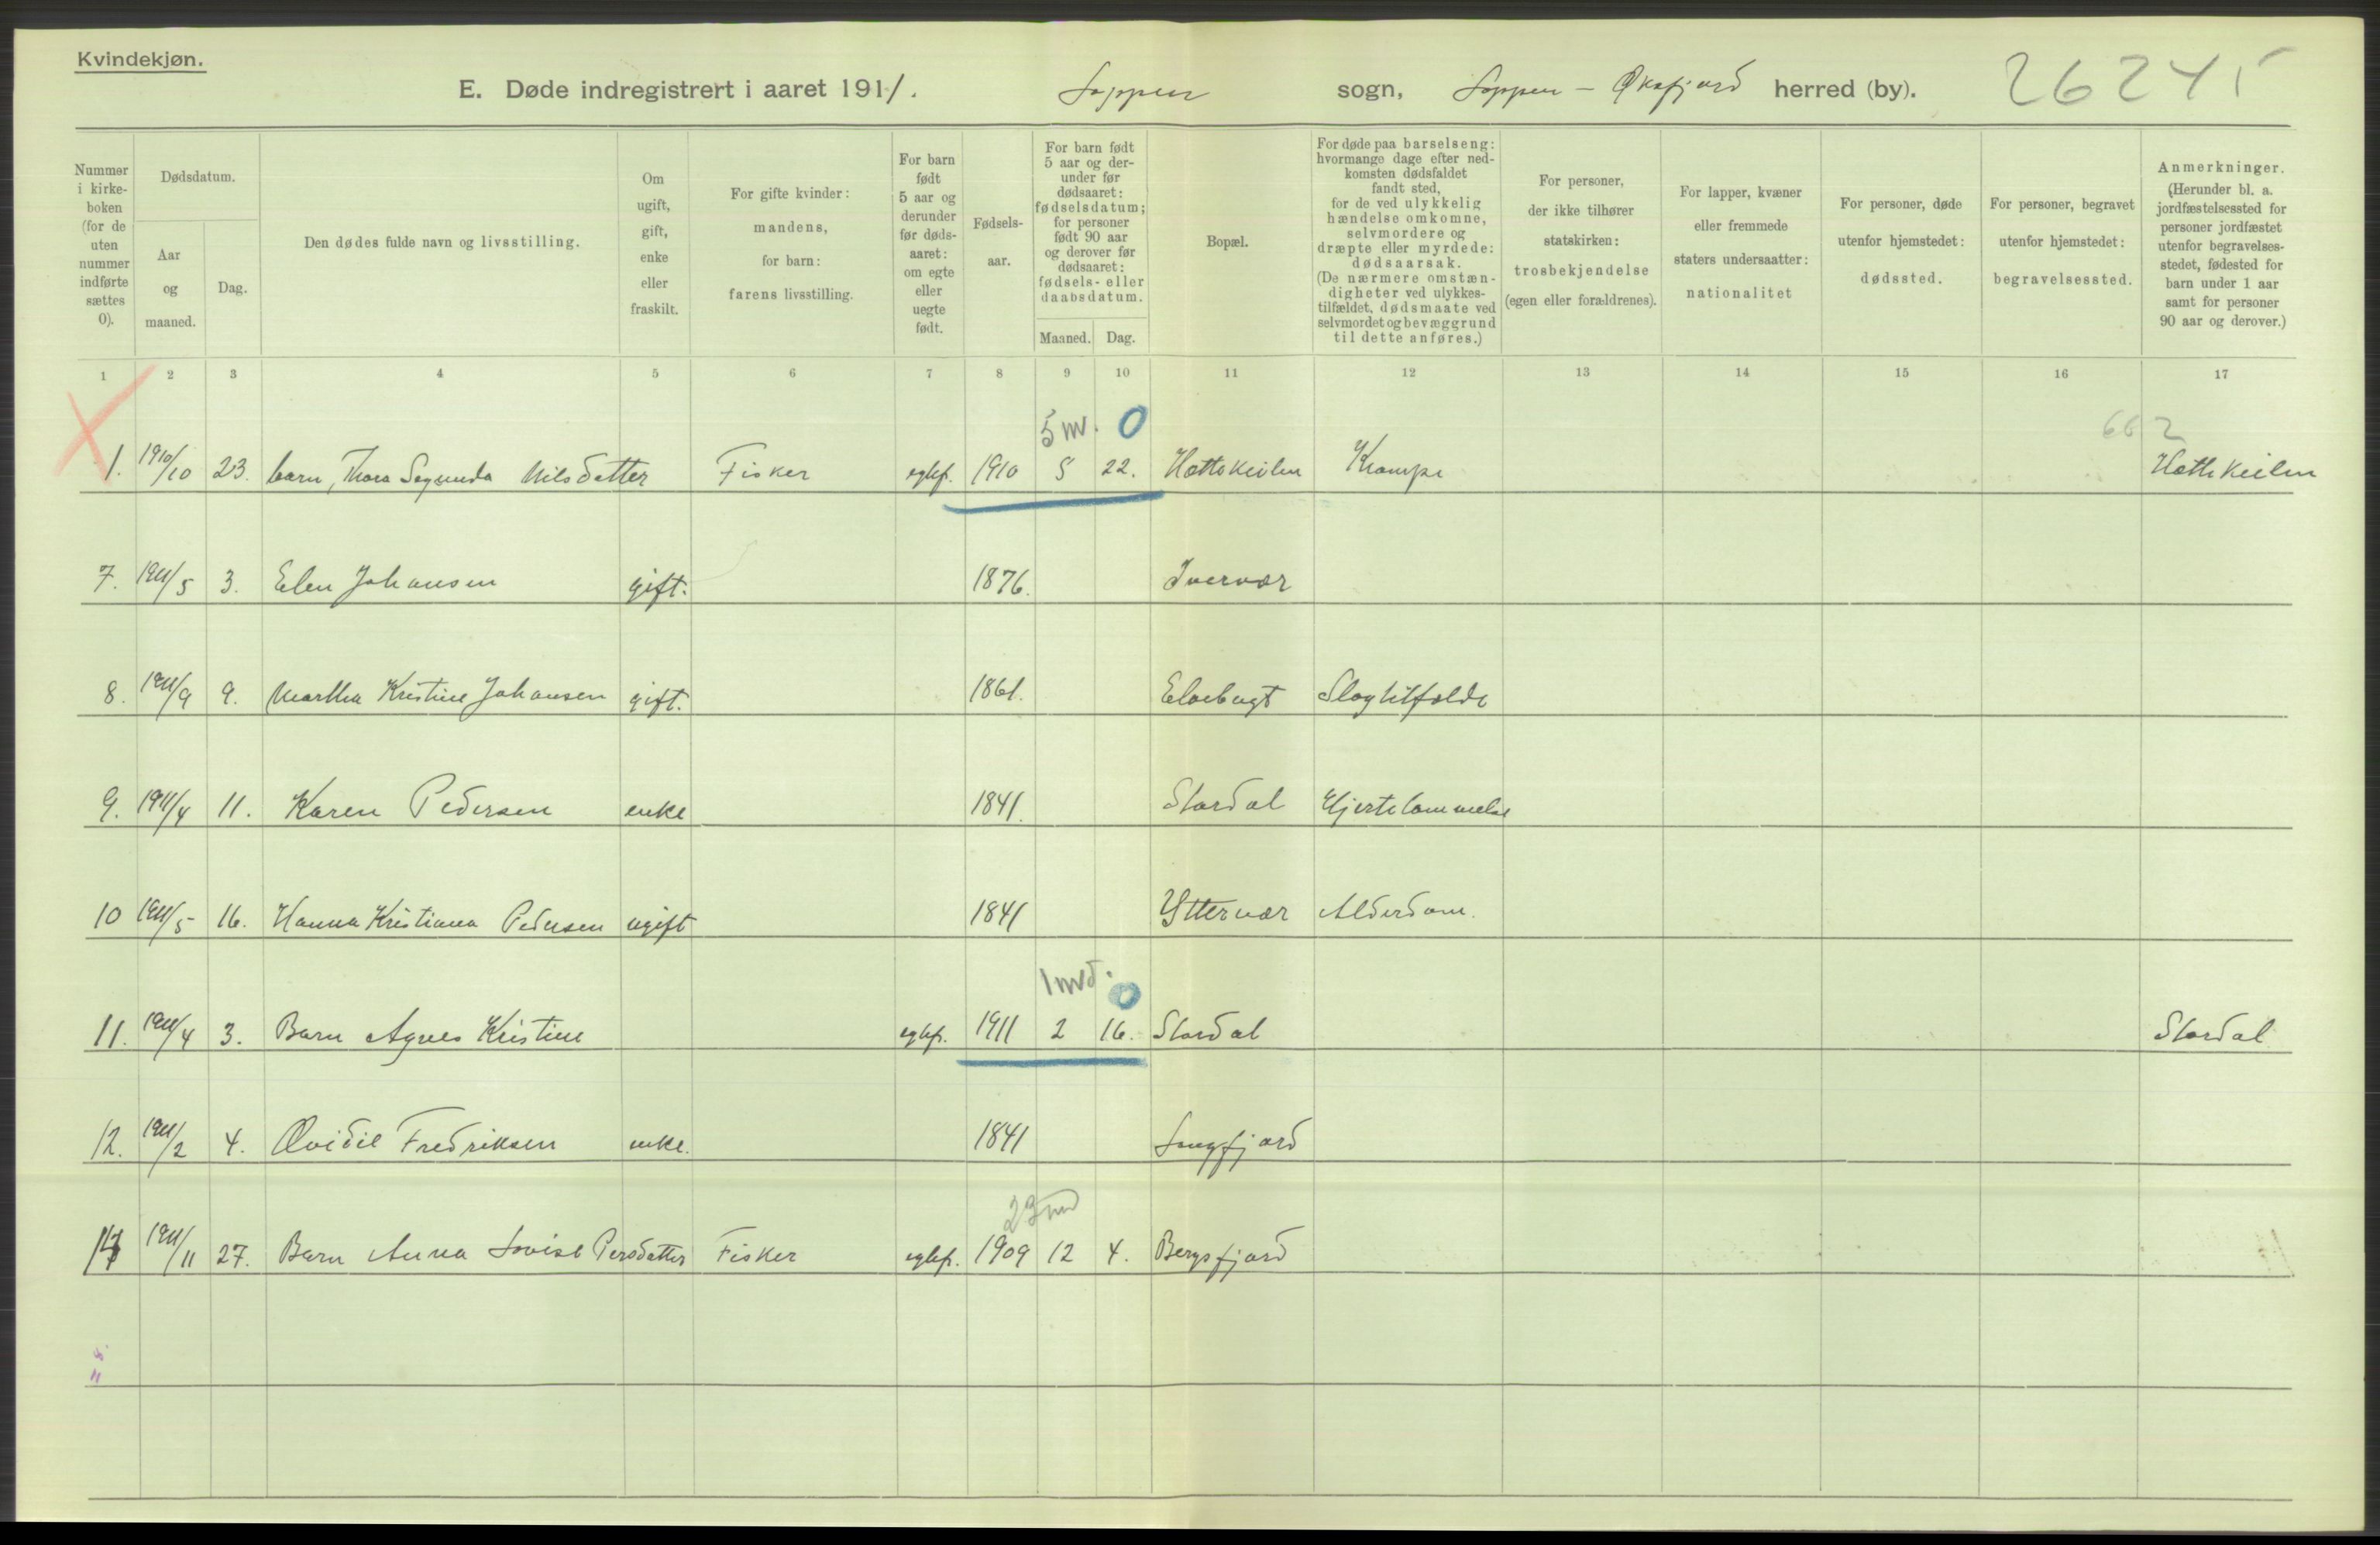 Kvindekjøn.
E. Døde indregistrert i aaret 1911. Loppen sogn, Loppen - Øksfjord herred (by). 26245
Nummer i kirke- boken (for de uten nummer indførte sættes 0).
Dødsdatum.
Aar og maaned.
Dag.
Den dødes fulde navn og livsstilling.
Om ugift, gift, enke eller fraskilt.
For gifte kvinder: mandens, for barn: farens livsstilling.
For barn født 5 aar og derunder før døds- aaret: om egte eller uegte født.
Fødsels- aar.
For barn født 5 aar og der- under før dødsaaret: fødselsdatum; for personer født 90 aar og derover før dødsaaret: fødsels- eller daabsdatum.
Maaned. Dag.
Bopæl.
For døde paa barselseng: hvormange dage efter ned- komsten dødsfaldet fandt sted, for de ved ulykkelig hændelse omkomne, selvmordere og dræpte eller myrdede: dødsaarsak. (De nærmere omstæn- digheter ved ulykkes- tilfældet, dødsmaate ved selvmordet og bevæggrund til dette anføres.)
For personer, der ikke tilhører statskirken: trosbekjendelse (egen eller forældrenes).
For lapper, kvæner eller fremmede staters undersaatter: nationalitet
For personer, døde utenfor hjemstedet: dødssted.
For personer, begravet utenfor hjemstedet: begravelsessted.
Anmerkninger. (Herunder bl. a. jordfæstelsessted for personer jordfæstet utenfor begravelses- stedet, fødested for barn under 1 aar samt for personer 90 aar og derover.)
1 2 3 4 5 6 7 8 9 10 11 12 13 14 15 16 17
5 m. 0 662
1. 1910/10 23. barn, Thora Segunda Nilsdatter Fisker egtef. 1910 5 22. Hattekeilen Krampe Hattekeilen
7. 1911/5 3. Elen Johansen gift. 1876. Ivervær
8. 1911/9 9. Martha Kristine Johansen gift. 1861. Elvebugt Slagtilfælde
9. 1911/4 11. Karen Pedersen enke 1841. Stordal Hjertelammelse
10 1911/5 16. Hanna Kristiana Pedersen ugift 1841 Yttervær Alderdom.
1 md. 0
11. 1911/4 3. Barn Agnes Kristine egtef. 1911 2 16. Stordal Stordal
12. 1911/2 4. Ovidie Fredriksen enke. 1841 Langfjord
23 md
14 1911/11 27. Barn Anna Lovise Persdatter Fisker egtef. 1909 12 4. Bergsfjord